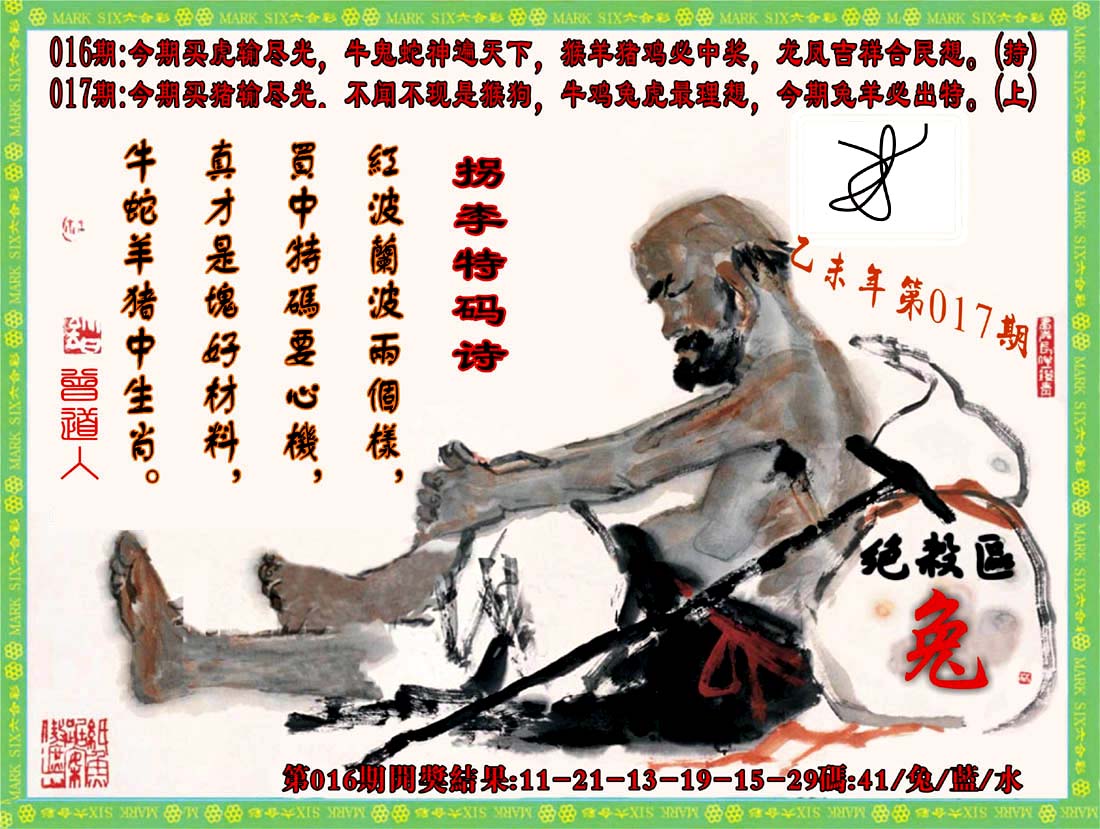 MARK SIX六合彩
016期:今期买虎输尽光，牛鬼蛇神遍天下，猴羊猪鸡必中奖，龙凤吉祥合民想。(持)
017期:今期买猪输尽光．不闻不现是猴狗，牛鸡兔虎最理想，今期兔羊必出特。(上)
拐李特码诗
紅波蘭波兩個樣，
買中特碼要心機，
真才是塊好材料，
牛蛇羊猪中生肖。
曾道人
乙未年第017期
绝殺區
兔
第016期開獎結果:11-21-13-19-15-29碼:41/兔/藍/水